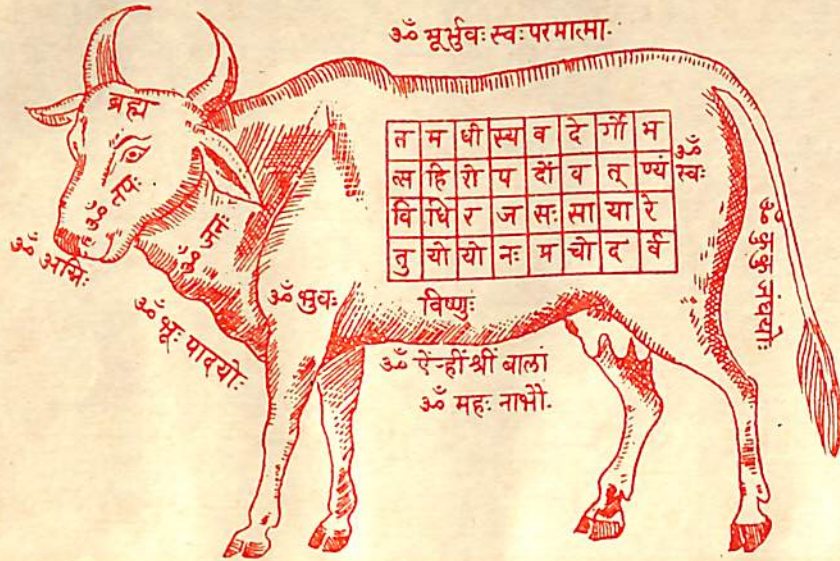 ॐ भूर्भुवः स्वः परमात्मा.
ब्रह्म
ॐ तपः
ॐ अग्निः
ॐ भूः पादयोः
ॐ भुवः
विष्णुः
त म धी स्य व दे र्गो भ
त्स हि रो प दों व त् ण्यं
वि धि र ज सः सा या रे
तु यो यो नः प्र चो द र्व
ॐ स्वः
ॐ ऐं-ह्रीं-श्रीं बालां
ॐ महः नाभौ.